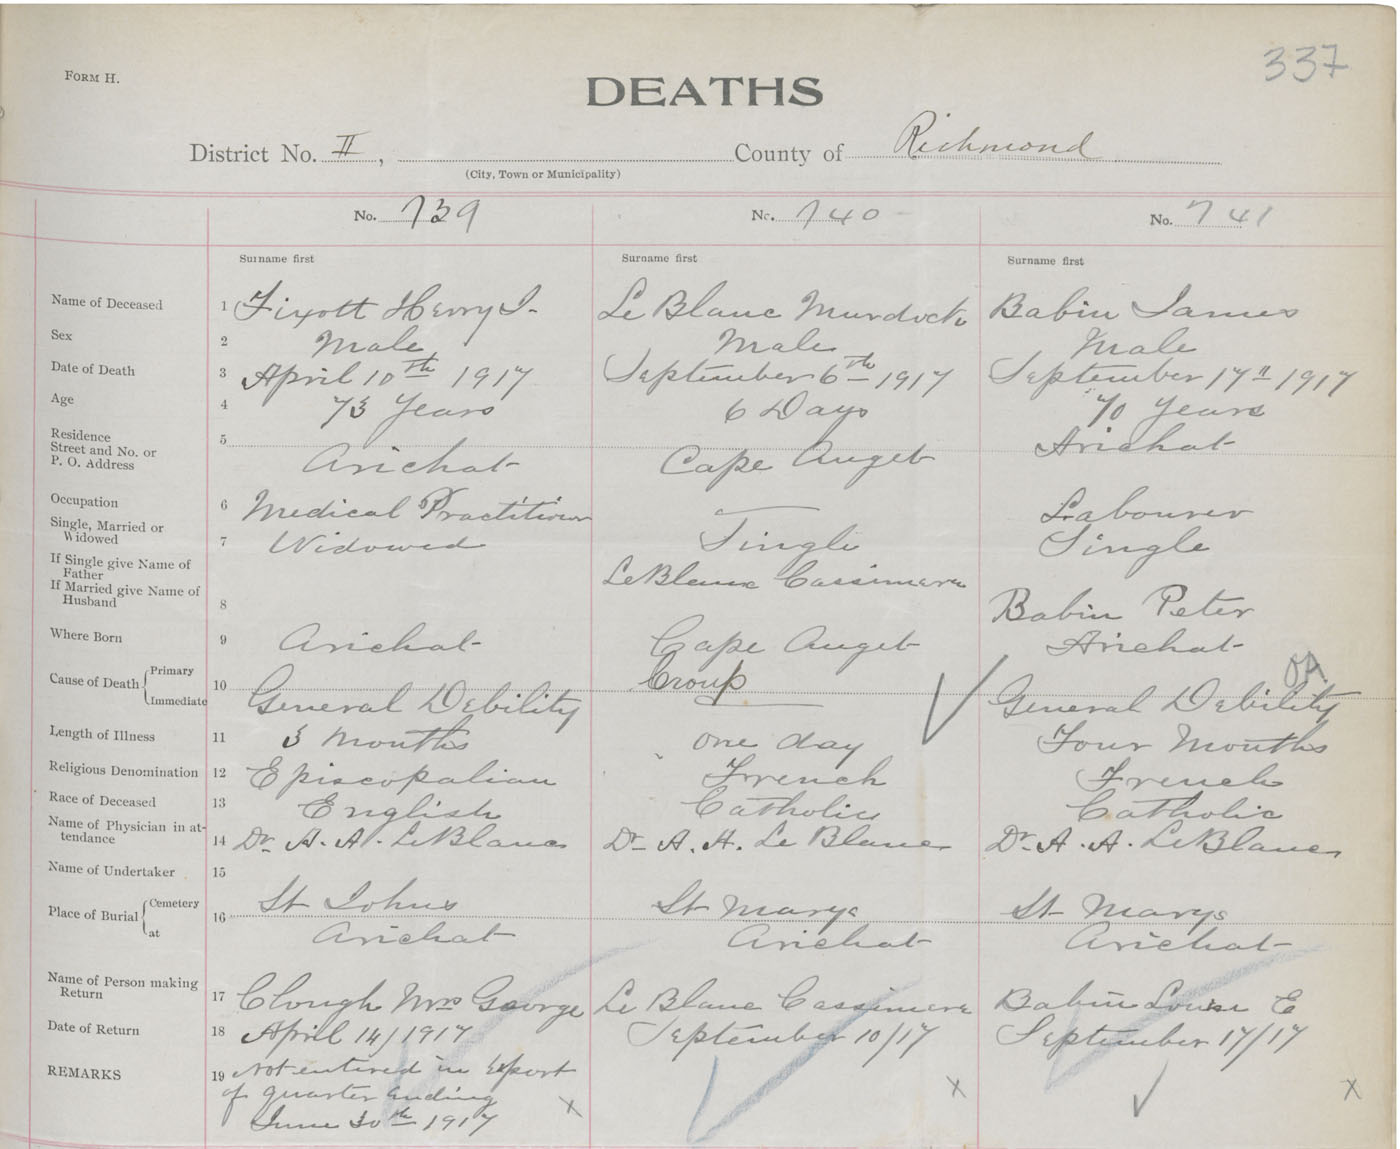 337
FORM H.
DEATHS
District No. II, County of Richmond
(City, Town or Municipality)
No. 739 No. 740 No. 741
Surname first Surname first Surname first
Name of Deceased 1 Fixott Henry J. Le Blanc Murdock Babin James
Sex 2 Male Male Male
Date of Death 3 April 10th 1917 September 6th 1917 September 17" 1917
Age 4 73 Years 6 Days 70 Years
Residence
Street and No. or
P. O. Address 5 Arichat Cape Auget Arichat
Occupation 6 Medical Practitioner — Labourer
Single, Married or
Widowed 7 Widowed Single Single
If Single give Name of
Father
If Married give Name of
Husband 8 LeBlanc Cassimere Babin Peter
Where Born 9 Arichat Cape Auget Arichat
Cause of Death { Primary
Immediate 10 General Debility Croup General Debility OA.
Length of Illness 11 3 Months one day Four Months
Religious Denomination 12 Episcopalian French French
Race of Deceased 13 English Catholic Catholic
Name of Physician in at-
tendance 14 Dr. A. A. LeBlanc Dr A. A. Le Blanc Dr. A. A. LeBlanc
Name of Undertaker 15
Place of Burial { Cemetery
at 16 St Johns St Marys St Marys
Arichat Arichat Arichat
Name of Person making
Return 17 Clough Mrs George Le Blanc Cassimere Babin Louise E
Date of Return 18 April 14/1917 September 10/17 September 17/17
REMARKS 19 Not entered in Export
of quarter ending
June 30th 1917 x x x